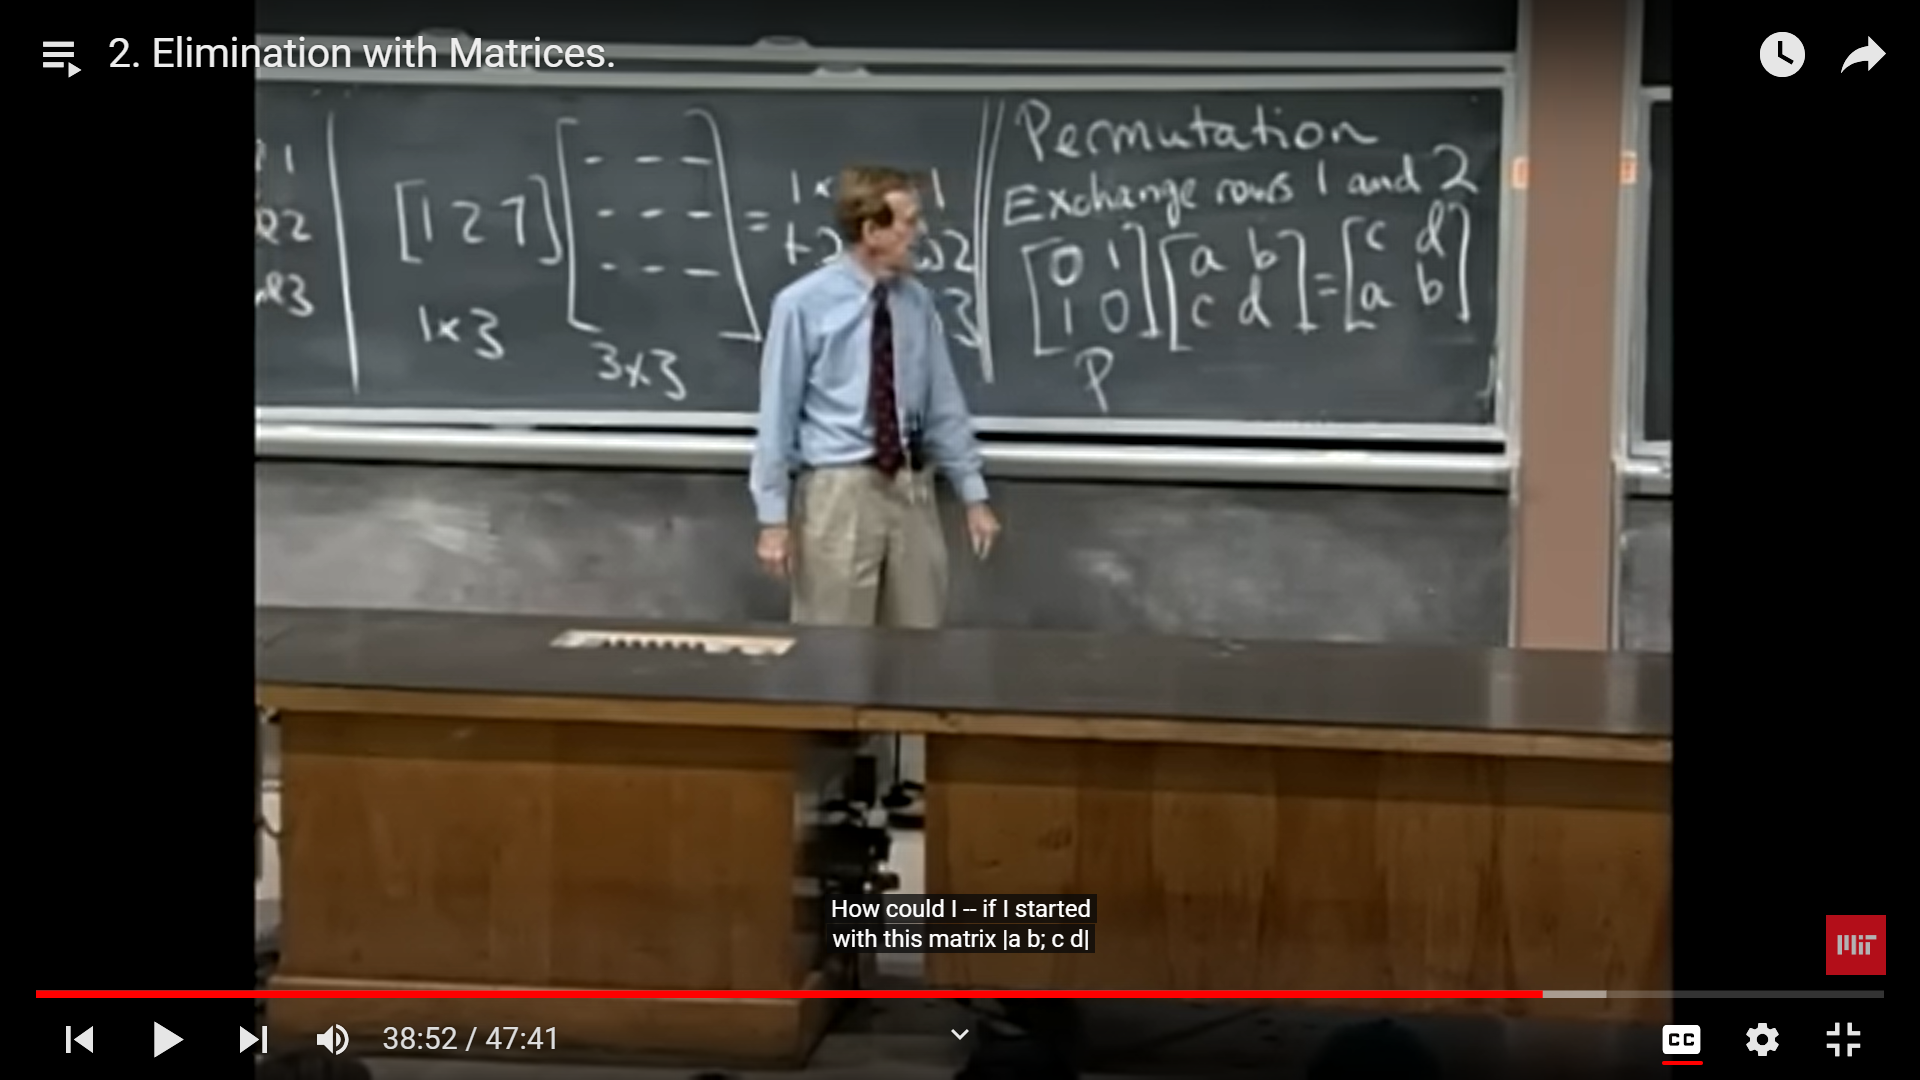 2. Elimination with Matrices.
[1 2 7] [- - - - - - - - -] =
1×3
3×3
Permutation
Exchange rows 1 and 2
[0 1] [a b] = [c d]
[1 0] [c d] [a b]
P
How could I -- if I started
with this matrix |a b; c d|
MIT
38:52 / 47:41
CC